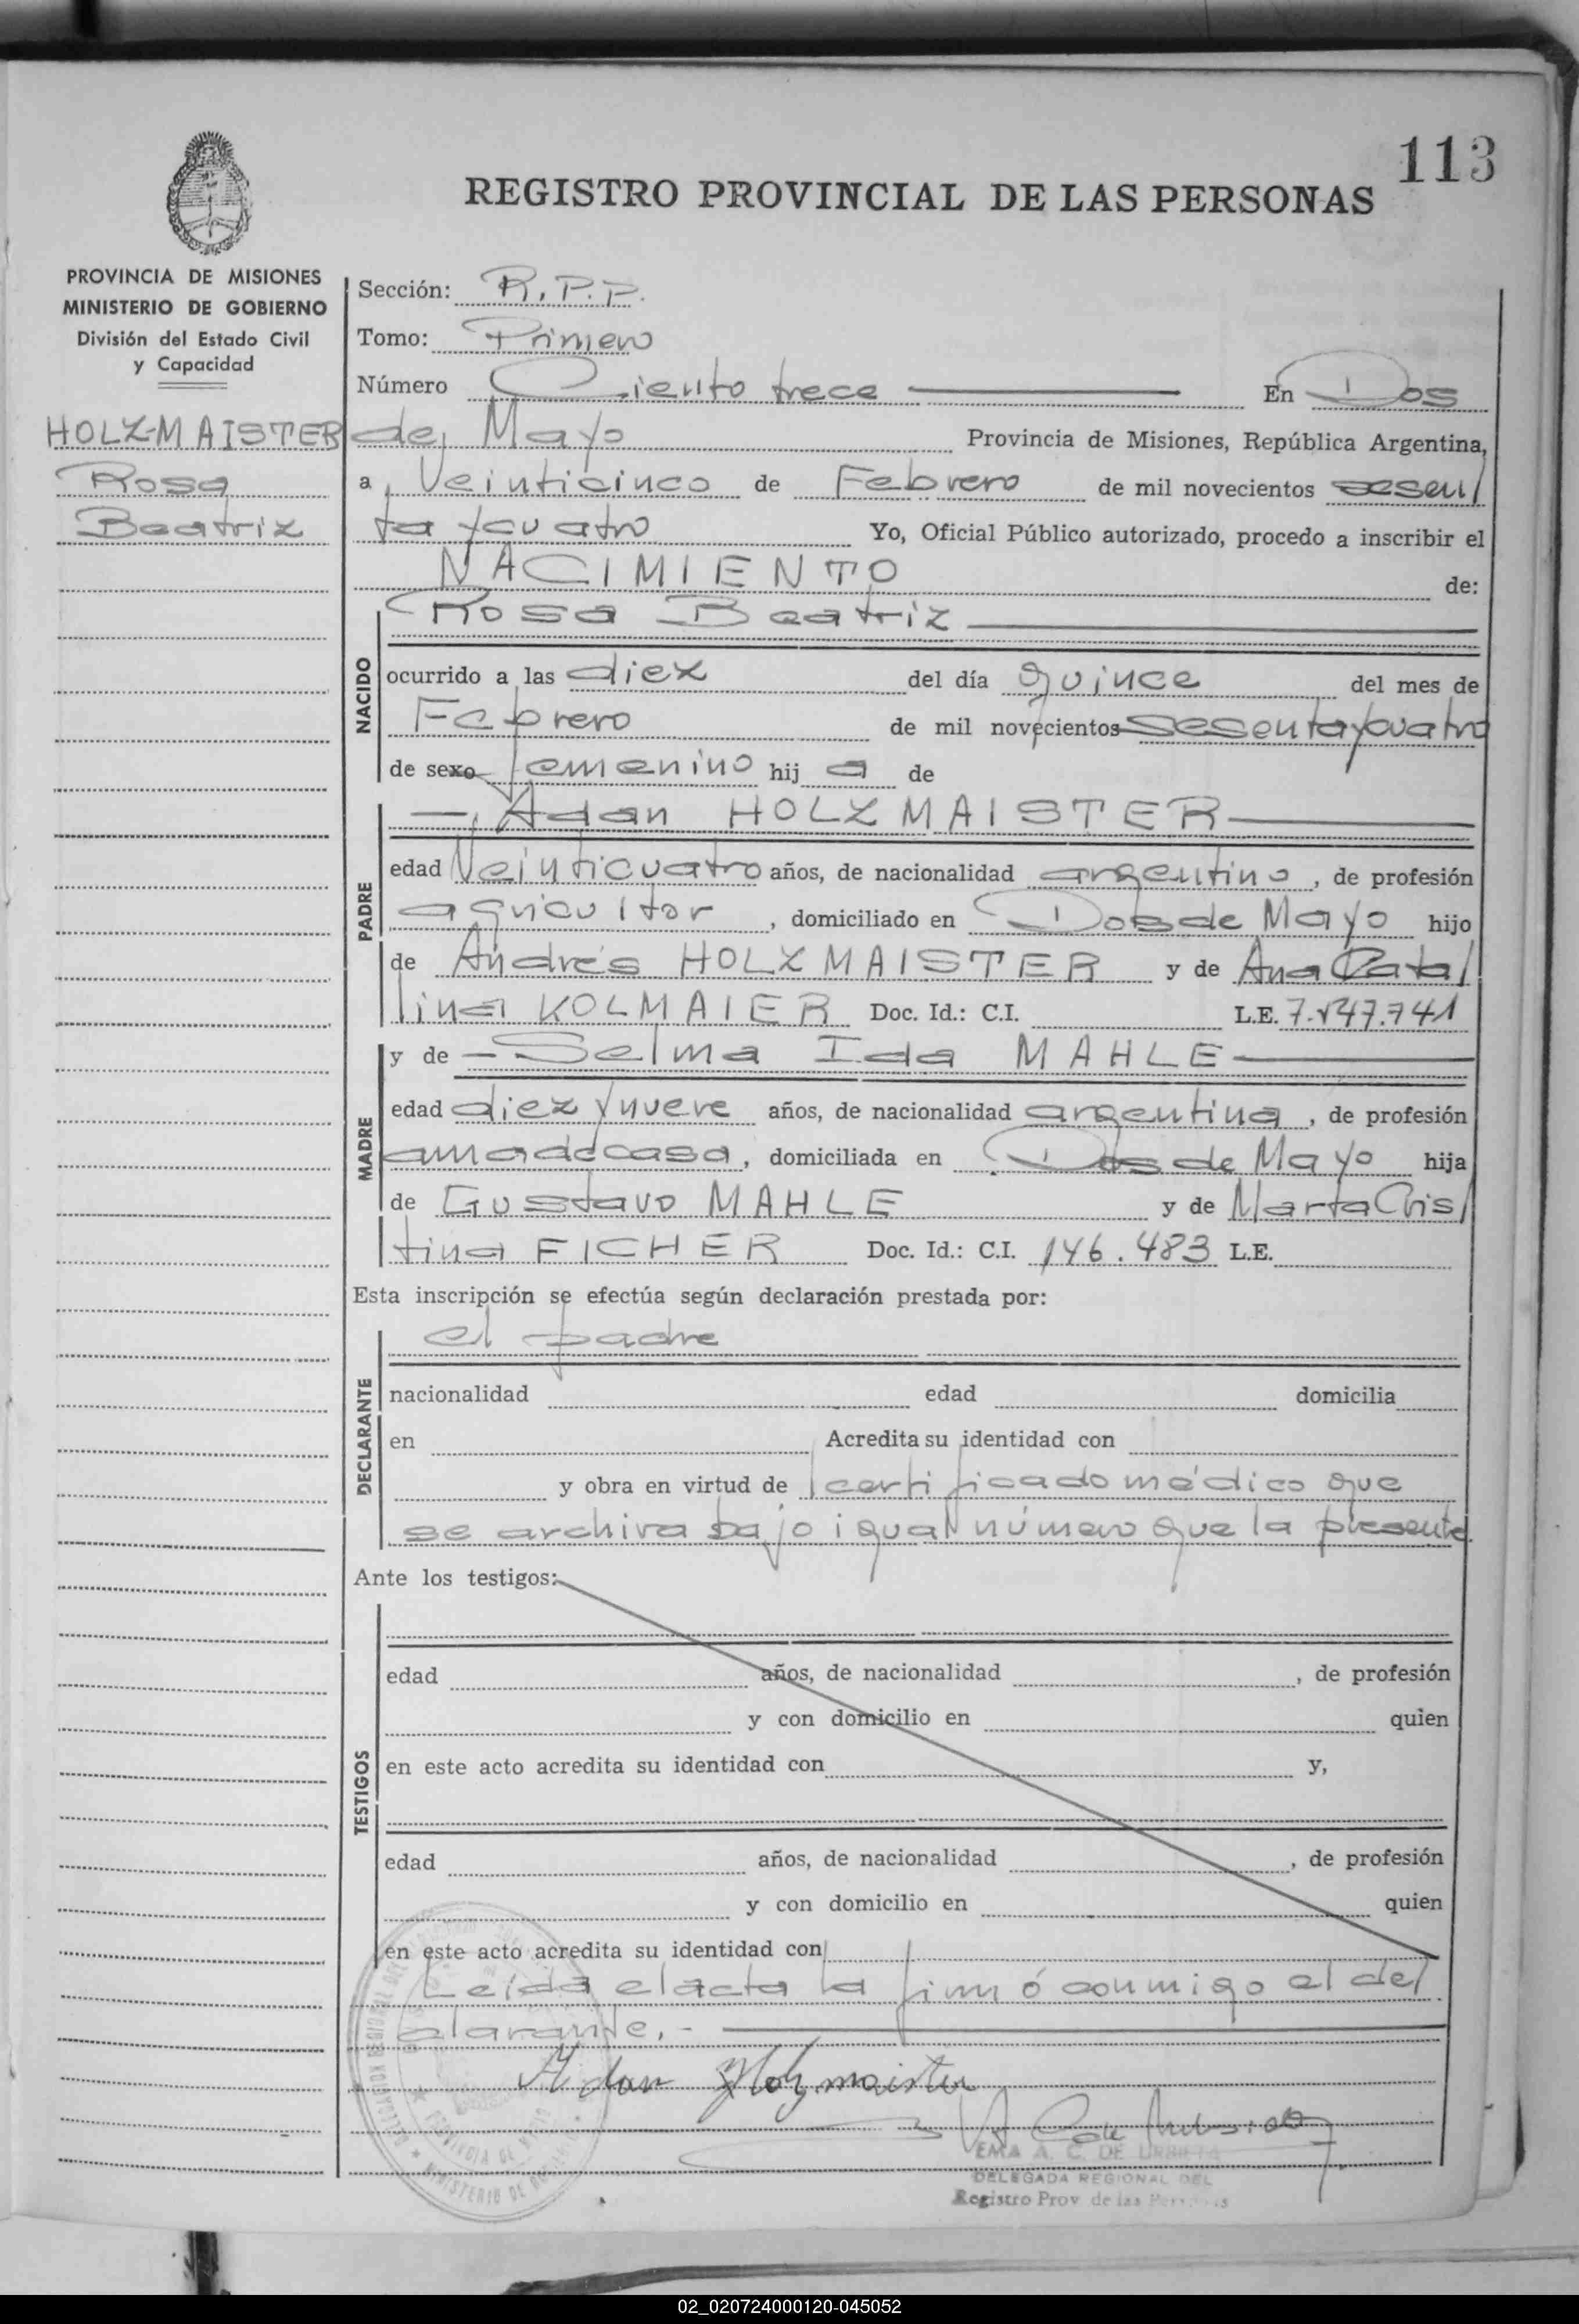 113
REGISTRO PROVINCIAL DE LAS PERSONAS
PROVINCIA DE MISIONES
MINISTERIO DE GOBIERNO
División del Estado Civil
y Capacidad
HOLZMAISTER
Rosa
Beatriz
Sección: R.P.P.
Tomo: Primero
Número Ciento trece En Dos
de Mayo Provincia de Misiones, República Argentina,
a Veinticinco de Febrero de mil novecientos sesen/
ta y cuatro Yo, Oficial Público autorizado, procedo a inscribir el
NACIMIENTO de:
NACIDO
Rosa Beatriz
ocurrido a las diez del día quince del mes de
Febrero de mil novecientos sesenta y cuatro
de sexo femenino hij a de
PADRE
Adan HOLZMAISTER
edad Veinticuatro años, de nacionalidad argentino, de profesión
agricultor, domiciliado en Dos de Mayo hijo
de Andrés HOLZMAISTER y de Ana Cata/
lina KOLMAIER Doc. Id.: C.I. L.E. 7.547.741
MADRE
y de Selma Ida MAHLE
edad diez y nueve años, de nacionalidad argentina, de profesión
ama de casa, domiciliada en Dos de Mayo hija
de Gustavo MAHLE y de Marta Cris/
tina FICHER Doc. Id.: C.I. 146.483 L.E.
Esta inscripción se efectúa según declaración prestada por:
DECLARANTE
el padre
nacionalidad edad domicilia
en Acredita su identidad con
y obra en virtud de certificado médico que
se archiva bajo igual número que la presente.
Ante los testigos:
TESTIGOS
edad años, de nacionalidad , de profesión
y con domicilio en quien
en este acto acredita su identidad con y,
edad años, de nacionalidad , de profesión
y con domicilio en quien
en este acto acredita su identidad con
Leída el acta la firmó conmigo el de/
clarante.-
Adan Holzmaister
EMA A. C. DE
DELEGADA REGIONAL DEL
Registro Prov. de las Personas
02_020724000120-045052